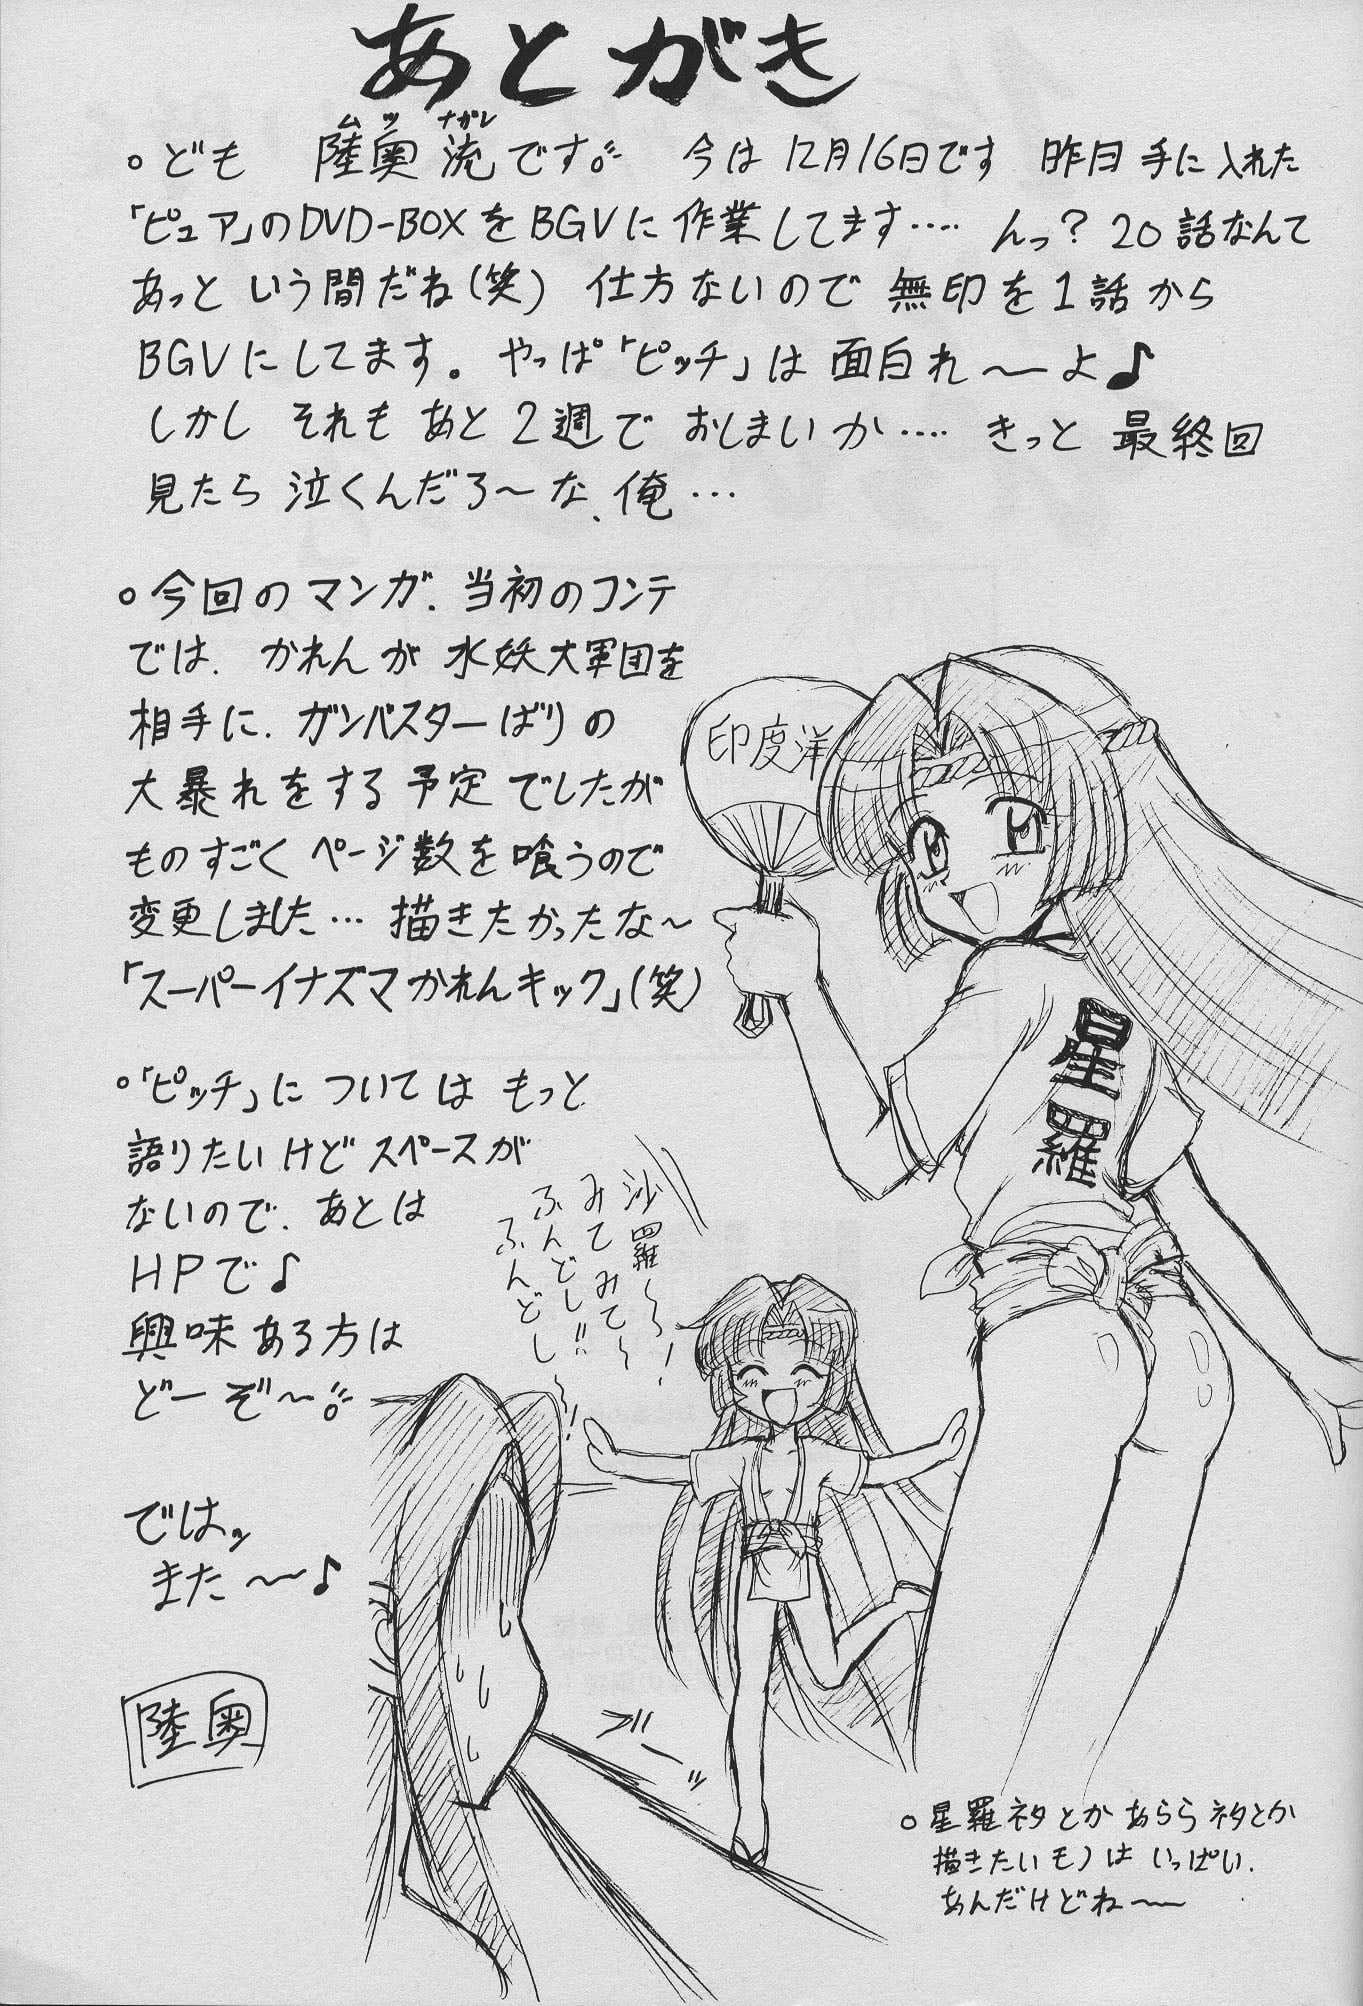 あとがき
ムツ ナガレ
。ども 陸奥流です 今は12月16日です 昨日手に入れた
「ピュア」のDVD-BOXをBGVに作業してます‥‥ んっ?20話なんて
あっという間だね(笑) 仕方ないので無印を1話から
BGVにしてます。やっぱ「ピッチ」は面白れ〜よ♪
しかし それも あと2週でおしまいか‥‥ きっと 最終回
見たら泣くんだろ〜な、俺…
。今回のマンガ、当初のコンテ
では、かれんが水妖大軍団を
相手に、ガンバスターばりの
大暴れをする予定でしたが
ものすごくページ数を喰うので
変更しました…描きたかったな〜
「スーパーイナズマかれんキック」(笑)
。「ピッチ」についてはもっと
語りたいけどスペースが
ないので、あとは
HPで♪
興味ある方は
どーぞ〜
ではッ
また〜♪
陸奥
印度洋
星羅
沙羅〜〜!
みてみて〜
ふんどし!!
ふんどし〜!
。星羅ネタとか あららネタとか
描きたいモノは いっぱい、
あんだけどね〜